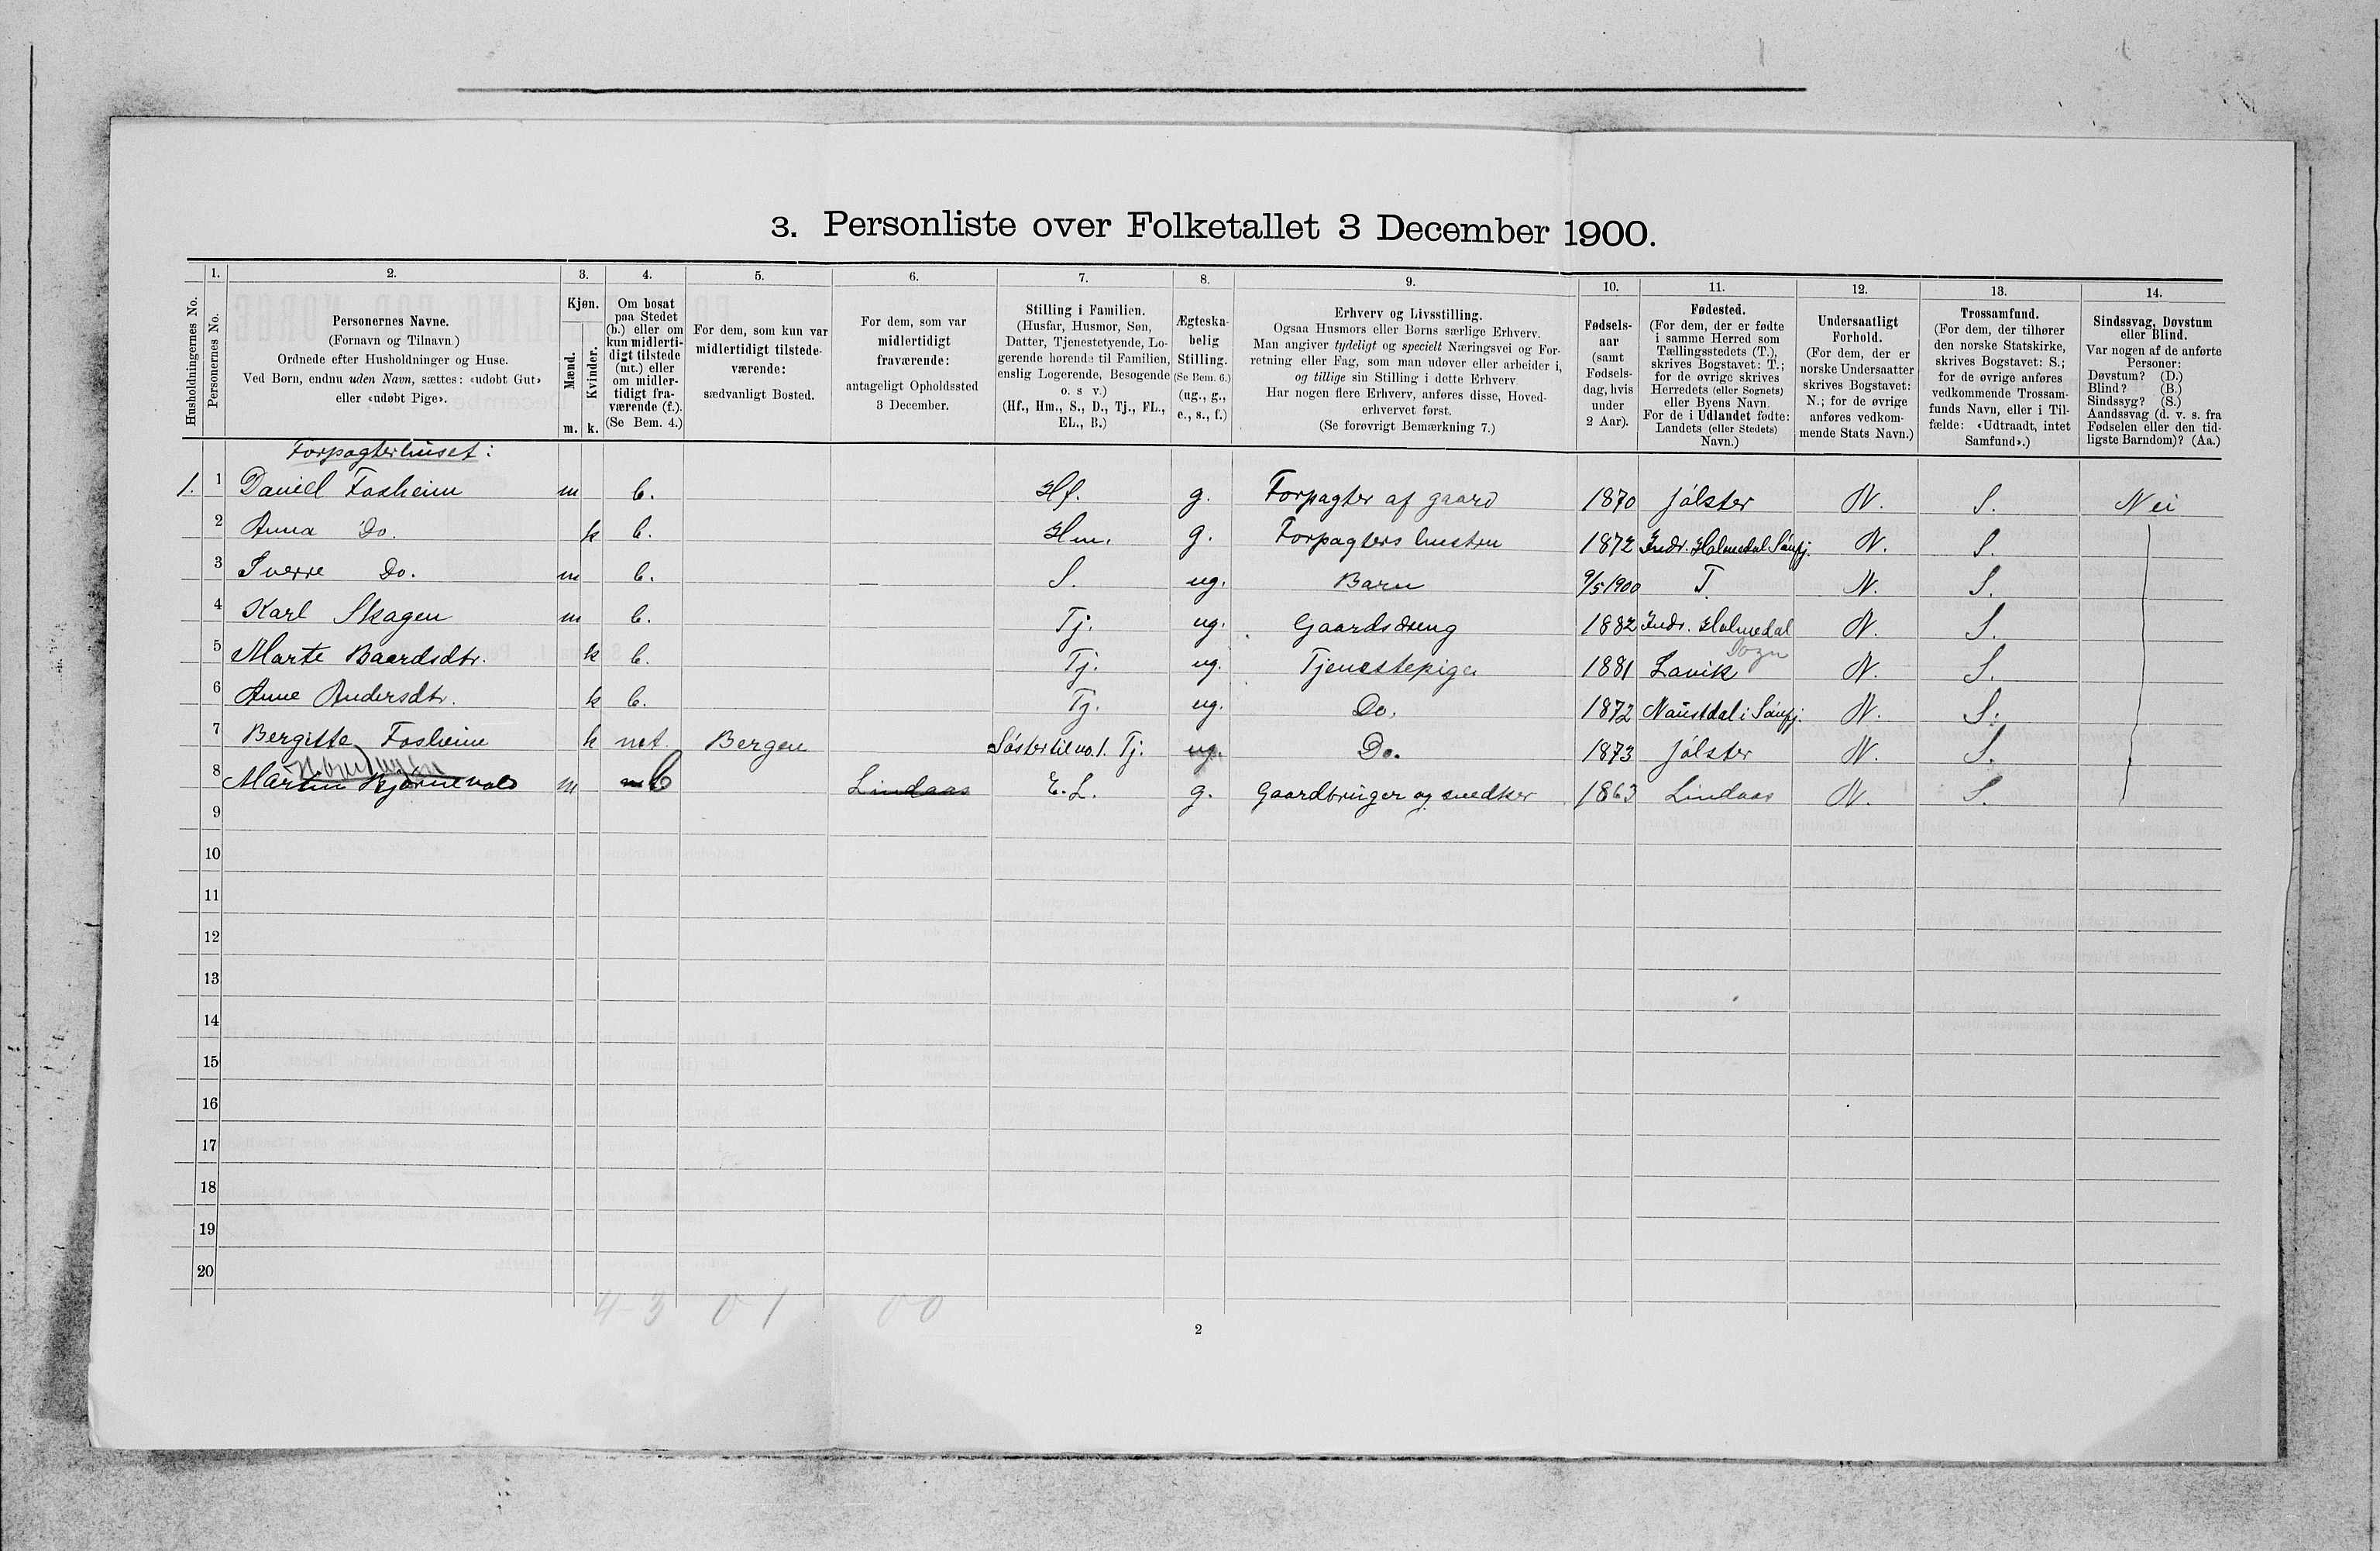 3. Personliste over Folketallet 3 December 1900.
Husholdningernes No.
1.
Personernes No.
2.
Personernes Navne.
(Fornavn og Tilnavn.)
Ordnede efter Husholdninger og Huse.
Ved Børn, endnu uden Navn, sættes: «udøbt Gut»
eller «udøbt Pige».
3.
Kjøn.
Mænd.
Kvinder.
m. k.
4.
Om bosat
paa Stedet
(b.) eller om
kun midlerti-
digt tilstede
(mt.) eller
om midler-
tidigt fra-
værende (f.).
(Se Bem. 4.)
5.
For dem, som kun var
midlertidigt tilstede-
værende:
sædvanligt Bosted.
6.
For dem, som var
midlertidigt
fraværende:
antageligt Opholdssted
3 December.
7.
Stilling i Familien.
(Husfar, Husmor, Søn,
Datter, Tjenestetyende, Lo-
gerende hørende til Familien,
enslig Logerende, Besøgende
o. s v.)
(Hf., Hm., S., D., Tj., FL.,
EL., B.)
8.
Ægteska-
belig
Stilling.
(Se Bem. 6.)
(ug., g.,
e., s., f.)
9.
Erhverv og Livsstilling.
Ogsaa Husmors eller Børns særlige Erhverv.
Man angiver tydeligt og specielt Næringsvei og For-
retning eller Fag, som man udøver eller arbeider i,
og tillige sin Stilling i dette Erhverv
Har nogen flere Erhverv, anføres disse, Hoved-
erhvervet først.
(Se forøvrigt Bemærkning 7.)
10.
Fødsels-
aar
(samt
Fødsels-
dag, hvis
under
2 Aar).
11.
Fødested.
(For dem, der er fødte
i samme Herred som
Tællingsstedets (T.),
skrives Bogstavet: T.;
for de øvrige skrives
Herredets (eller Sognets)
eller Byens Navn
For de i Udlandet fødte:
Landets (eller Stedets)
Navn.)
12.
Undersaatligt
Forhold.
(For dem, der er
norske Undersaatter
skrives Bogstavet:
N.; for de øvrige
anføres vedkom-
mende Stats Navn.)
13.
Trossamfund.
(For dem, der tilhører
den norske Statskirke,
skrives Bogstavet: S.;
for de øvrige anføres
vedkommende Trossam-
funds Navn, eller i Til-
fælde: «Udtraadt, intet
Samfund».)
14.
Sindssvag, Døvstum
eller Blind.
Var nogen af de anførte
Personer:
Døvstum? (D.)
Blind? (B.)
Sindssyg? (S.)
Aandssvag (d. v. s. fra
Fødselen eller den tid-
ligste Barndom)? (Aa.)
Forpagterhuset:
1. 1 Daniel Fosheim m b. Hf. g. Forpagter af gaard 1870 Jølster N. S. Nei
2 Anna Do. k b. Hm. g. Forpagters hustru 1872 Indr. Holmedal Sønfj. N. S.
3 Sverre Do. m b. S. ug. Barn 9/5 1900 T. N. S.
4 Karl Skagen m b. Tj. ug. Gaardsdreng 1882 Indr. Holmedal N. S.
5 Marte Baardsdtr. k b. Tj. ug. Tjenestepige 1881 Lavik Sogn N. S.
6 Anne Andersdtr. k b. Tj. ug. Do. 1872 Naustdal i Sønfj. N. S.
7 Bergitte Fosheim k mt. Bergen Søster til no. 1. Tj. ug. Do. 1873 Jølster N. S.
8 Martin Bjørnevold m b Lindaas E.L. g. Gaardbruger og snedker 1863 Lindaas N. S.
9
10
11
12
13
14
15
16
17
18
19
20
4-3 0 1 0 0
2